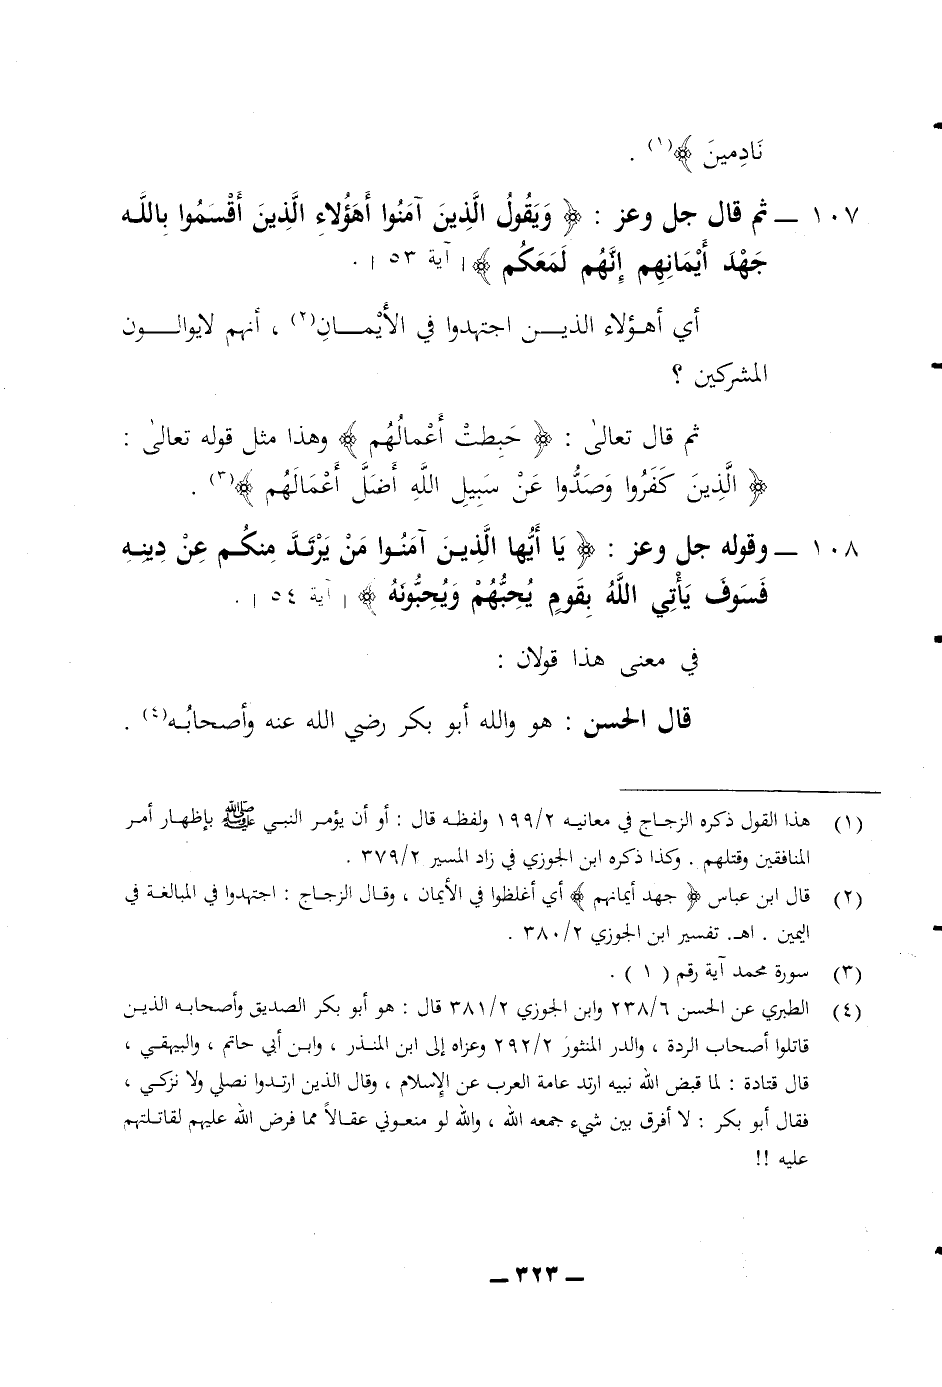 نَادِمينَ ﴾(١) .
١٠٧ ـ ثم قال جل وعز : ﴿ وَيَقُولُ الَّذِينَ آمَنُوا أَهَؤُلاءِ الَّذِينَ أَقْسَمُوا بِاللَّه
جَهْدَ أَيْمَانِهِم إِنَّهُم لَمَعَكُم ﴾ [ آية ٥٣ ] .
أي أهؤلاء الذين اجتهدوا في الأَيْمَانِ(٢) ، أنهم لايوالون
المشركين ؟
ثم قال تعالىٰ : ﴿ حَبِطتْ أَعْمالُهُم ﴾ وهذا مثل قوله تعالىٰ :
﴿ الَّذِينَ كَفَرُوا وَصَدُّوا عَنْ سَبِيلِ اللَّهِ أَضَلَّ أَعْمَالَهُم ﴾(٣) .
١٠٨ ـ وقوله جل وعز : ﴿ يَا أَيُّها الَّذِينَ آمَنُوا مَنْ يَرْتَدَّ مِنكُم عِنْ دِينِهِ
فَسَوفَ يَأْتِي اللَّهُ بِقَومٍ يُحِبُّهُمْ وَيُحِبُّونَهُ ﴾ [ آية ٥٤ ] .
في معنى هذا قولان :
قال الحسن : هو والله أبو بكر رضي الله عنه وأصحابُه(٤) .
(١) هذا القول ذكره الزجاج في معانيه ١٩٩/٢ ولفظه قال : أو أن يؤمر النبي ﷺ بإظهار أمر
المنافقين وقتلهم . وكذا ذكره ابن الجوزي في زاد المسير ٣٧٩/٢ .
(٢) قال ابن عباس ﴿ جهد أيمانهم ﴾ أي أغلظوا في الأيمان ، وقال الزجاج : اجتهدوا في المبالغة في
اليمين . اهـ. تفسير ابن الجوزي ٣٨٠/٢ .
(٣) سورة محمد آية رقم ( ١ ) .
(٤) الطبري عن الحسن ٢٣٨/٦ وابن الجوزي ٣٨١/٢ قال : هو أبو بكر الصديق وأصحابه الذين
قاتلوا أصحاب الردة ، والدر المنثور ٢٩٢/٢ وعزاه إلى ابن المنذر ، وابن أبي حاتم ، والبيهقي ،
قال قتادة : لما قبض الله نبيه ارتد عامة العرب عن الإِسلام ، وقال الذين ارتدوا نصلي ولا نزكي ،
فقال أبو بكر : لا أفرق بين شيء جمعه الله ، والله لو منعوني عقالاً مما فرض الله عليهم لقاتلتهم
عليه !!
ـ ٣٢٣ ـ